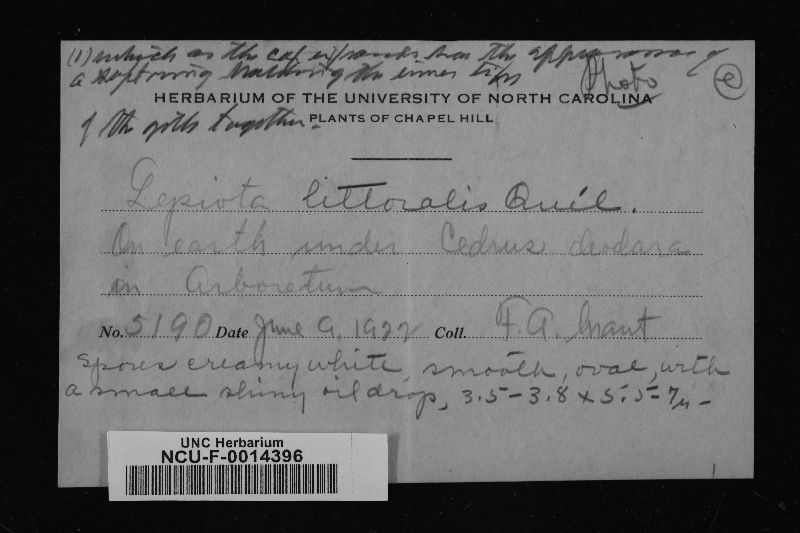 (1) which as the cap expands has the appearance of
a holding the inner tips
Photo
e
HERBARIUM OF THE UNIVERSITY OF NORTH CAROLINA
of the gills together.
PLANTS OF CHAPEL HILL
Lepiota littoralis Quél.
On earth under Cedrus deodara
in Arboretum
No. 5190 Date June 9, 1922 Coll. F. A. Grant
Spores creamy white, smooth, oval, with
a small shiny oil drop, 3.5-3.8 x 5.5-7µ-
UNC Herbarium
NCU-F-0014396
1